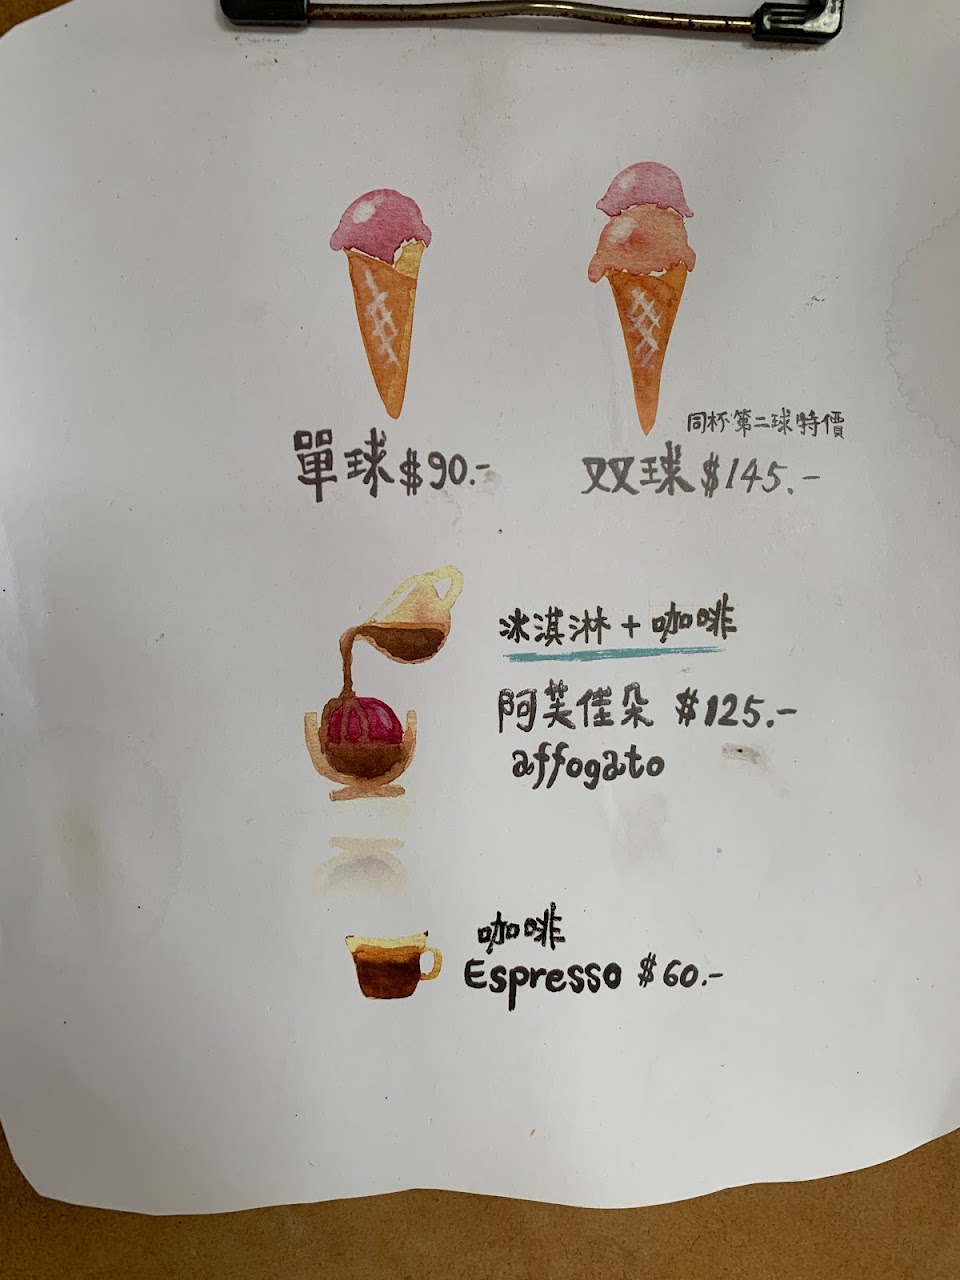 單球 $90.-
同杯第二球特價
双球 $145.-
冰淇淋 + 咖啡
阿芙佳朵 $125.-
affogato
咖啡
Espresso $60.-